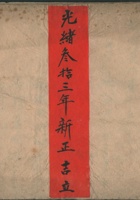 光緒叁拾三年新正吉立